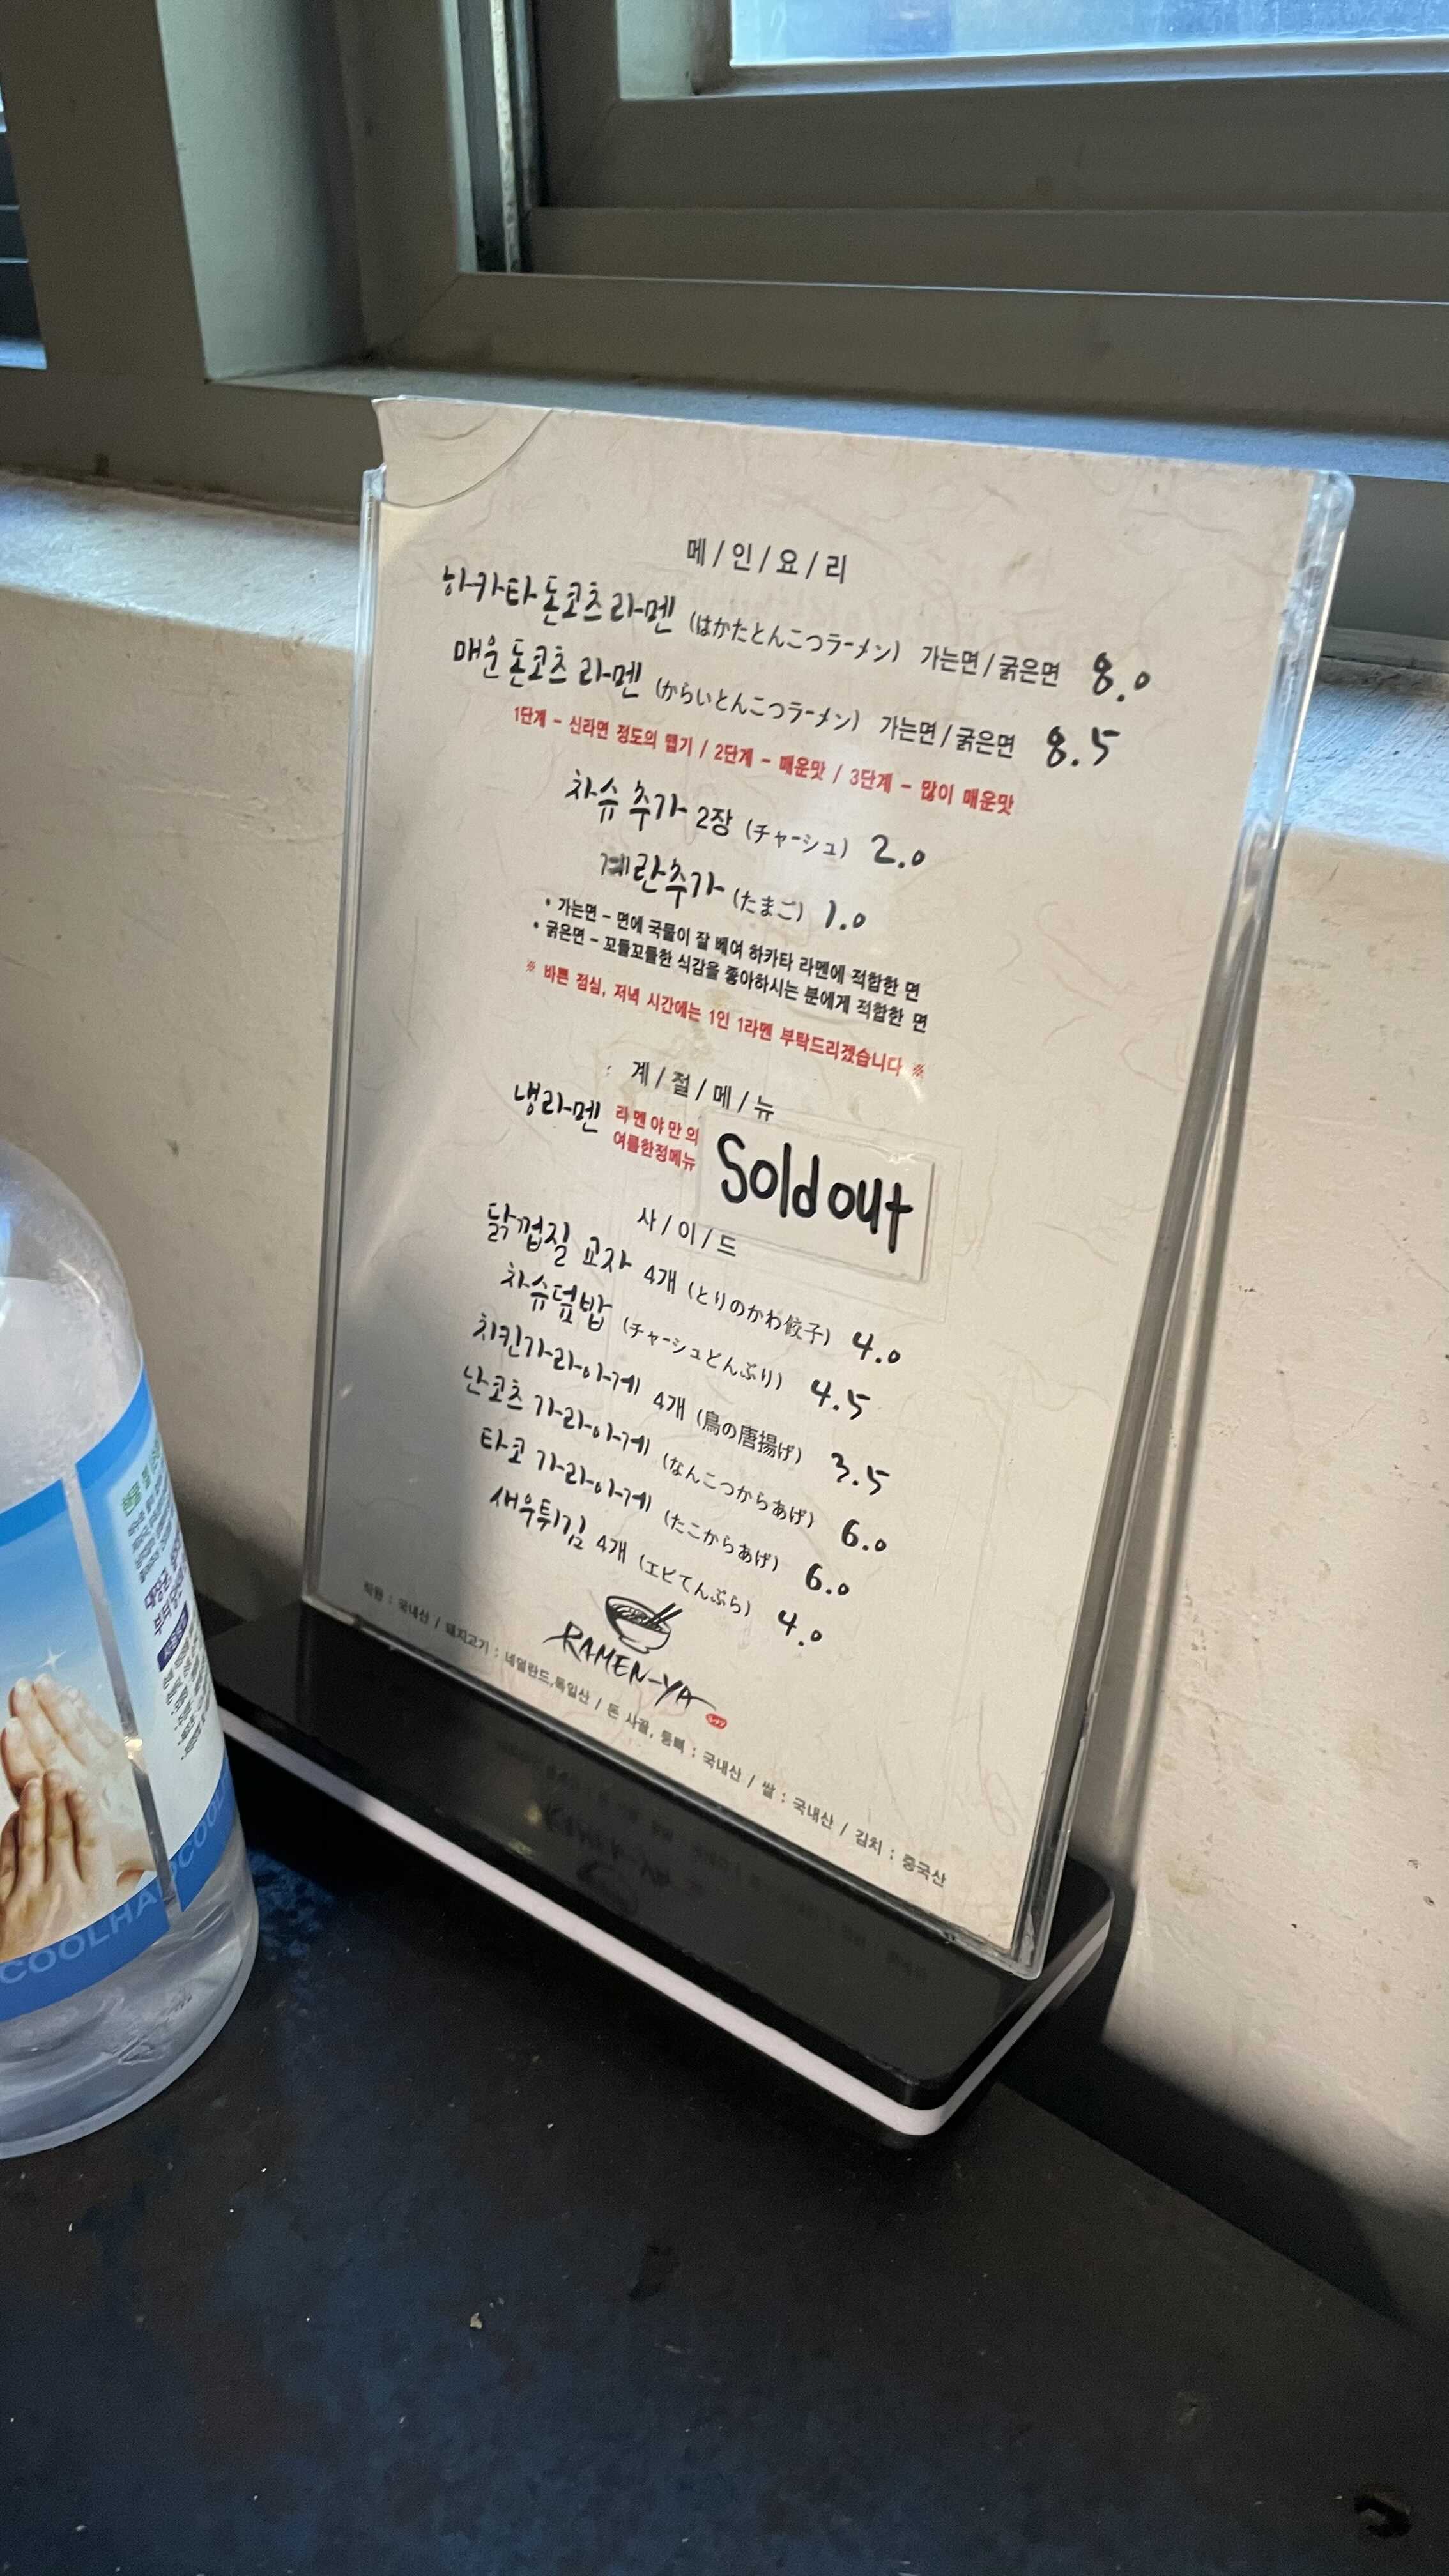 메/인/요/리
하카타 돈코츠 라멘 (はかたとんこつラーメン) 가는면/굵은면 8.0
매운 돈코츠 라멘 (からいとんこつラーメン) 가는면/굵은면 8.5
1단계 - 신라면 정도의 맵기 / 2단계 - 매운맛 / 3단계 - 많이 매운맛
차슈 추가 2장 (チャーシュ) 2.0
계란추가 (たまご) 1.0
• 가는면 - 면에 국물이 잘 베여 하카타 라멘에 적합한 면
• 굵은면 - 꼬들꼬들한 식감을 좋아하시는 분에게 적합한 면
※ 바쁜 점심, 저녁 시간에는 1인 1라멘 부탁드리겠습니다 ※
계/절/메/뉴
냉라멘 라멘야만의
여름한정메뉴
Sold out
사/이/드
닭껍질 교자 4개 (とりのかわ餃子) 4.0
차슈덮밥 (チャーシュどんぶり) 4.5
치킨가라아게 4개 (鳥の唐揚げ) 3.5
난코츠 가라아게 (なんこつからあげ) 6.0
타코 가라아게 (たこからあげ) 6.0
새우튀김 4개 (エビてんぷら) 4.0
RAMEN-YA
: 국내산 / 돼지고기 : 네덜란드,독일산 / 돈 사골, 등뼈 : 국내산 / 쌀 : 국내산 / 김치 : 중국산
COOLHA